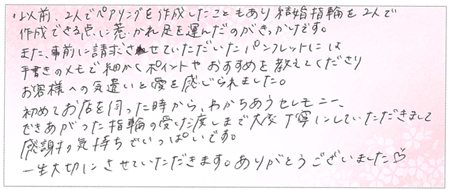 以前、2人でペアリングを作成したこともあり結婚指輪を2人で
作成できる点に惹かれ足を運んだのがきっかけです。
また、事前に請求させていただいたパンフレットには
手書きのメモで細かくポイントやおすすめを教えてくださり
お客様への気遣いと愛を感じられました。
初めてお店を伺った時から、わかちあうセレモニー、
できあがった指輪の受け渡しまで大変丁寧にしていただきまして
感謝の気持ちでいっぱいです。
一生大切にさせていただきます。ありがとうございました♡